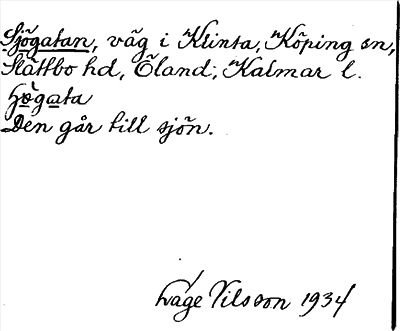 Sjögatan, väg i Klinta, Köping sn,
Slättbo hd, Öland; Kalmar l.
Den går till sjön.
Låge Nilsson 1934